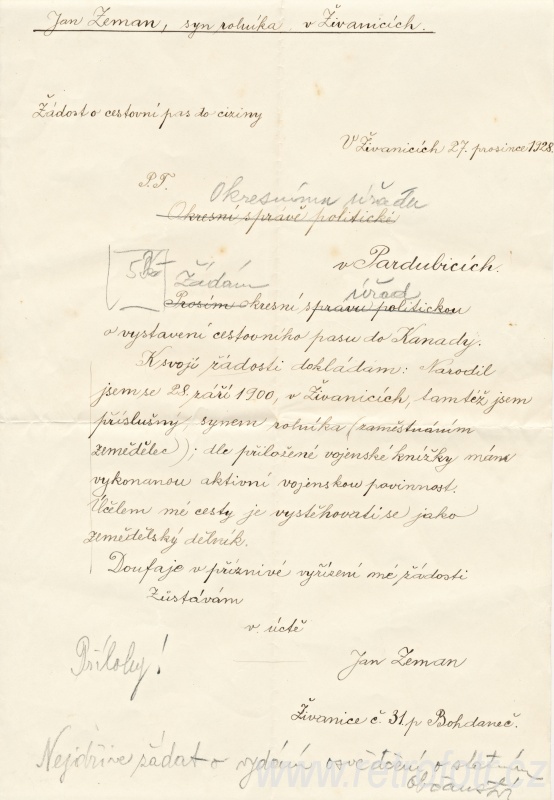 Jan Zeman, syn rolníka v Živanicích.
Žádost o cestovní pas do ciziny
V Živanicích 27. prosince 1928.
P.T.
Okresnímu úřadu
Okresní správě politické
v Pardubicích.
Žádám úřad
Prosím okresní správu politickou
o vystavení cestovního pasu do Kanady.
K svojí žádosti dokládám: Narodil
jsem se 28. září 1900, v Živanicích, tamtéž jsem
příslušný, synem rolníka (zaměstnáním
zemědělec)); dle přiložené vojenské knížky mám
vykonanou aktivní vojenskou povinnost.
Účelem mé cesty je vystěhovati se jako
zemědělský dělník.
Doufaje v příznivé vyřízení mé žádosti
Zůstávám
v úctě
Přílohy!
Jan Zeman
Živanice č. 31. p Bohdaneč.
Nejdříve žádat o vydání osvědčení o
www.retrofotr.cz